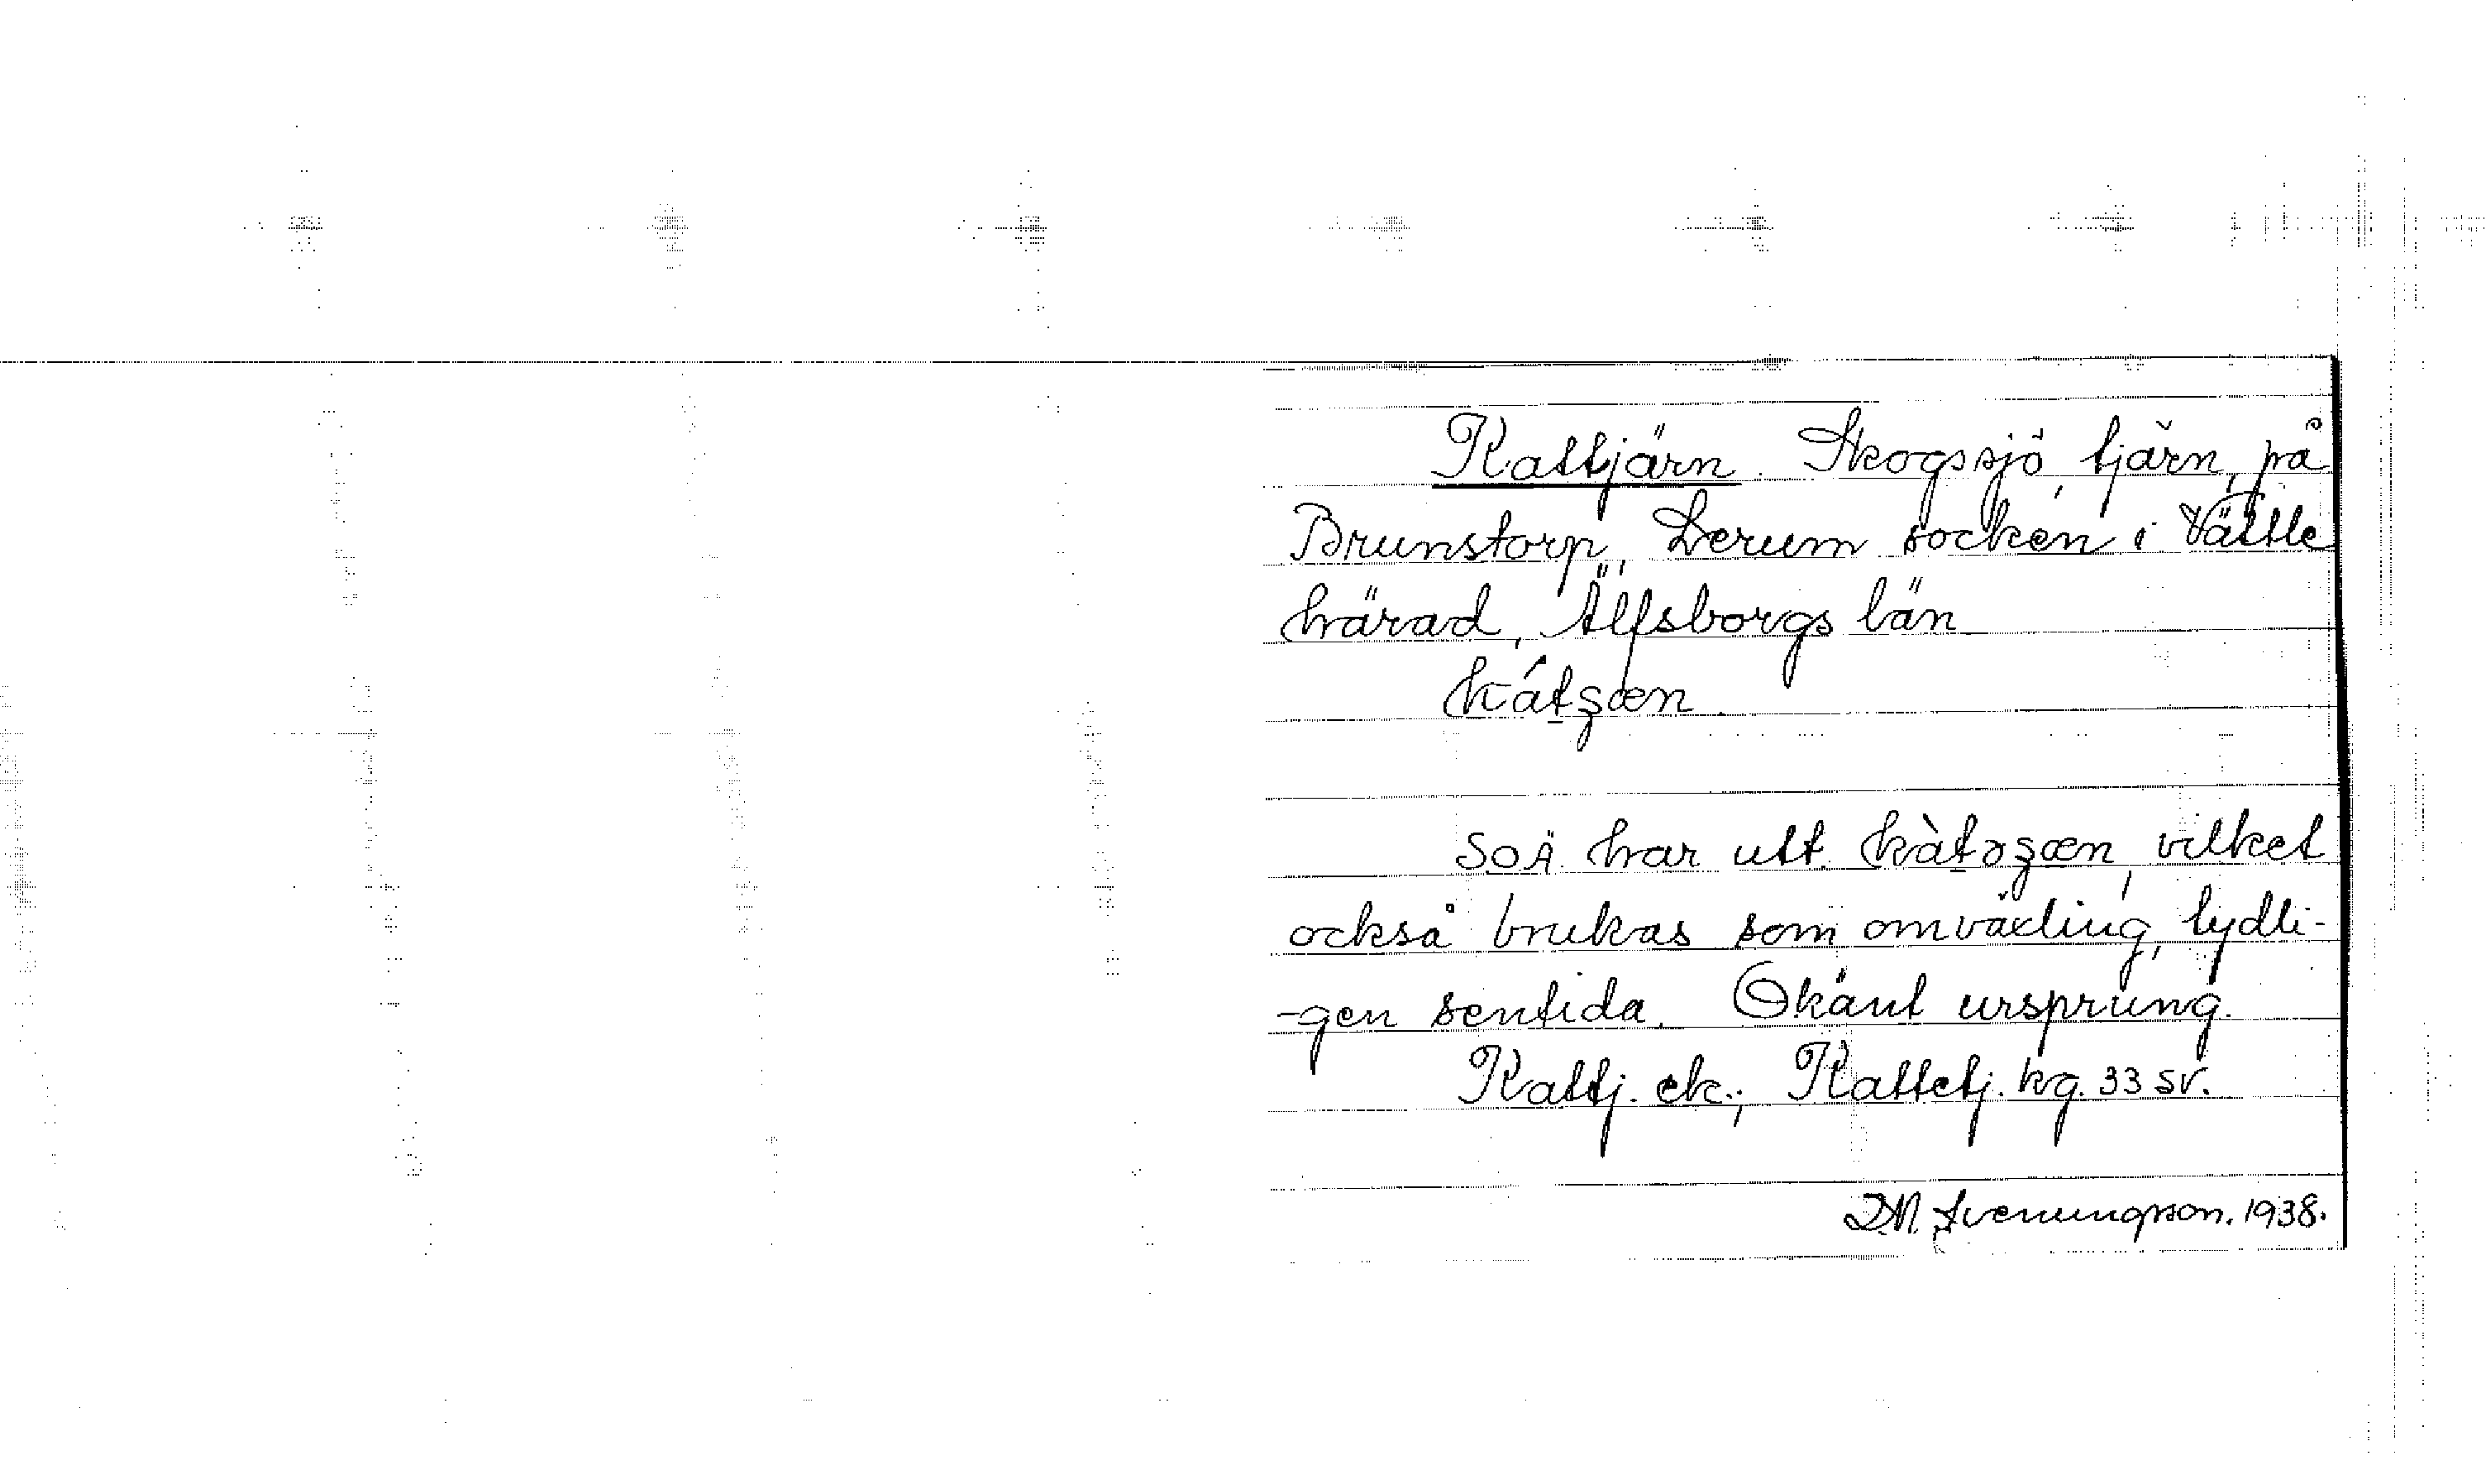 Kattjärn. Skogssjö, tjärn, på
Brunstorp, Lerum socken i Vättle
härad, Älfsborgs län
kátʂæn.
SOÄ har utt. kàtəʂæn, vilket
också brukas som omväxling, tydli-
-gen sentida. Okänt ursprung.
Kattj. ek.; Kattetj. kg. 33 sv.
D.N. Svenungsson. 1938.